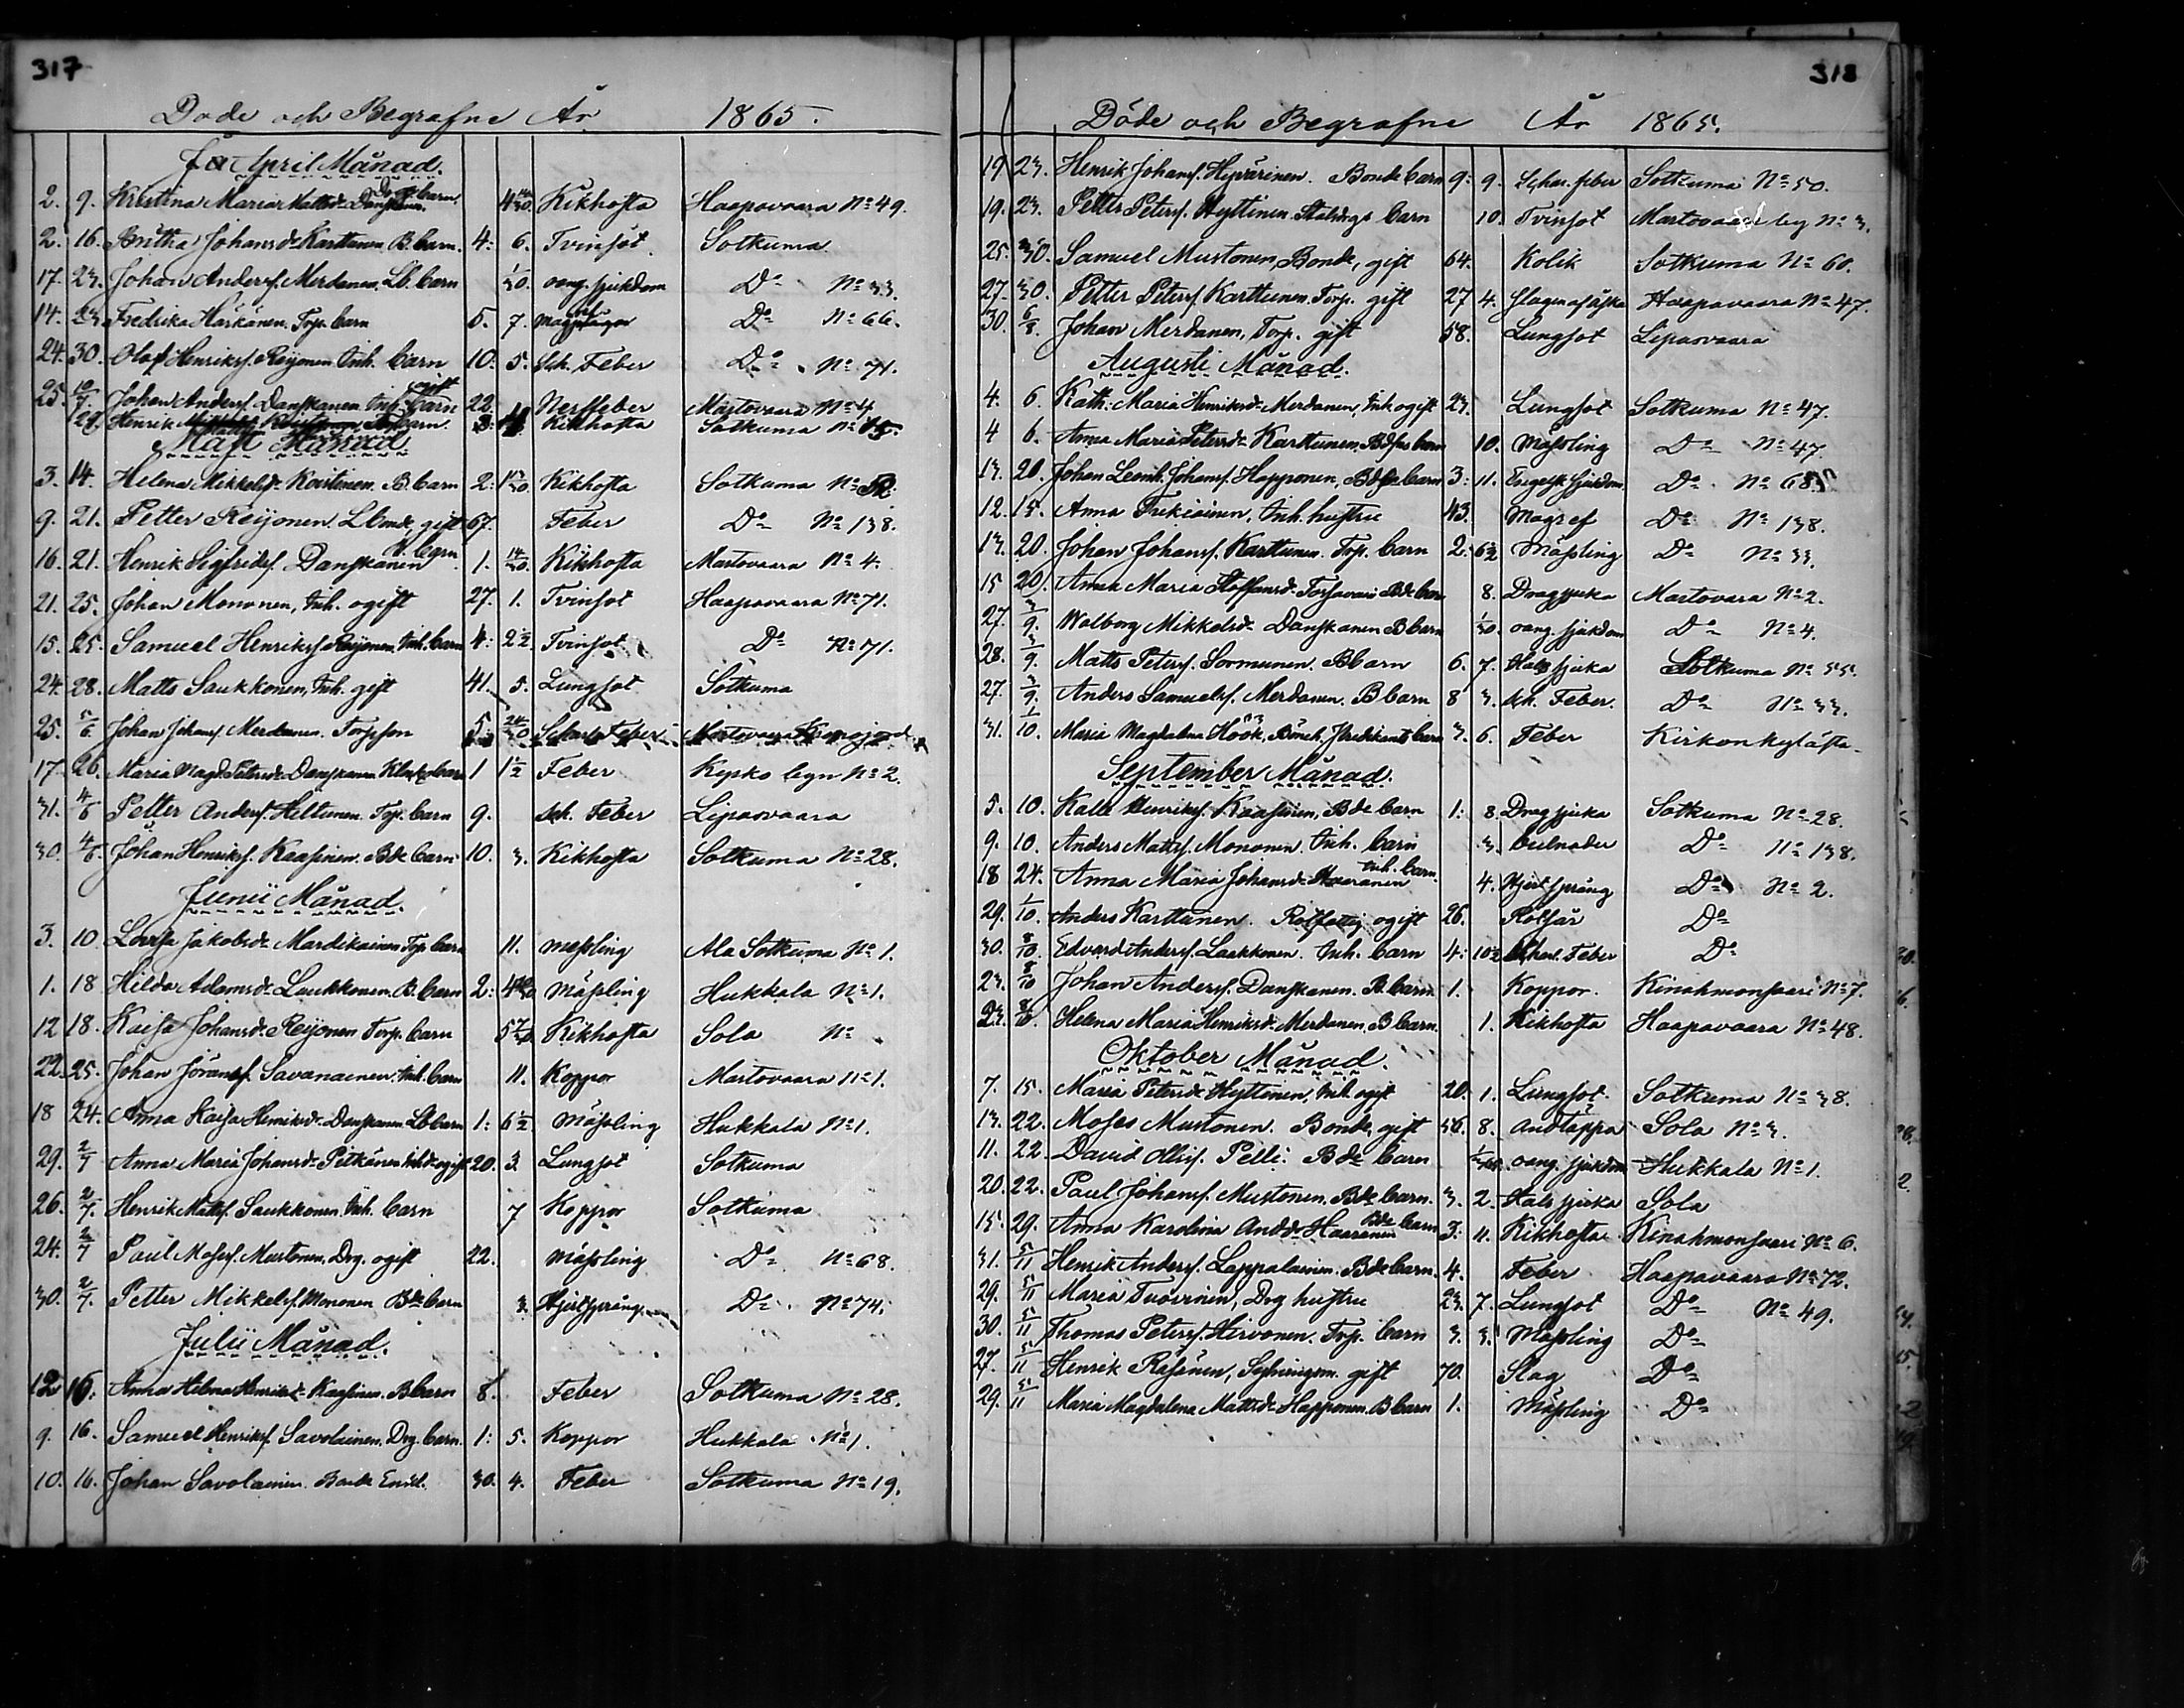 317
Döde och Begrafne År 1865.
April Månad.
2. 9. Kristina Maria Mattsdr Danskanen B. barn 4 14/30. Kikhosta Haapavaara No 49.
2. 16. Britha Johansdr Karttunen B. barn. 4: 6. Tvinsot. Sotkuma
17. 23. Johan Andersf. Merdanen. Lb. barn 1/30. oang. sjukdom Do No 33.
14. 23 Fredrika Härkänen. Torp. barn 5. 7. Do No 66.
24. 30. Olof Henriksf. Reijonen Inh. barn 10: 5. Sch. Feber Do No 71.
25. Johan Andersf. Danskanen Inh. gift 22. Nerffeber Martovaara No 4
Henrik barn. Kikhosta Sotkuma No
Maji Månad
3. 14. Helena Mikkelsdr Koistinen. B. barn 2: 13/30. Kikhosta Sotkuma No
9. 21. Petter Reijonen. Lbonde, gift 67. Feber Do No 138.
16. 21. Henrik Sigfridsf. Danskanen B. barn 1. 14/30. Kikhosta Martovaara No 4.
21. 25. Johan Mononen, Inh. ogift 27. 1. Tvinsot Haapavaara No 71.
15. 25. Samuel Henriksf Reijonen. Inh. barn 4: 2 1/2 Tvinsot Do No 71.
24. 28. Matts Saukkonen, Inh. gift 41. 5. Lungsot Sotkuma
25. 5/6 Johan Johansf. Merdanen. Torpson 5 24/30 Scharl. Feber Martovaara
17. 26. Maria Magd. Petersdr Danskanen barn 1 1 1/2 Feber Kepko byn No 2.
31. 4/6 Petter Andersf. Heltunen. Torp. barn 9. Sch. Feber Lipasvaara
30. 4/6 Johan Henriksf. Kaasinen. Bde barn 10. 3. Kikhosta Sotkuma No 28.
Junii Månad.
3. 10 Lovisa Jakobsdr Mardikainen Torp. barn 11. mässling Ala Sotkuma No 1.
1. 18 Hilda Adamsdr Laukkonen. B. barn 2: Mässling Hukkala No 1.
12 18. Kaisa Johansdr Reijonen Torp. barn Kikhosta Sola No
22. 25. Johan Jöransf. Savanainen. Inh. barn 11. Koppor Martovaara No 1.
18 24. Anna Kaisa Henriksdr Danskanen Lb barn 1: 6 1/2 Mässling Hukkala No 1.
29. 2/7 Anna Maria Johansdr Pitkänen Inh. ogift 20. 3. Lungsot Sotkuma
26. 2/7. Henrik Mattsf. Saukkonen. Inh. barn 7 Koppor Sotkuma
24. 2/7 Paul Mosesf. Mustonen. Drg. ogift 22. Mässling Do No 68.
30. 2/7. Petter Mikkelsf. Mononen Bde barn 3. Hjertsprång Do No 74.
Julii Månad.
12 16. Anna Helena Henriksdr Kaasinen. B barn 8. Feber Sotkuma No 28.
9. 16. Samuel Henriksf. Savolainen. Drg. barn. 1: 5. Koppor Hukkala No 1.
10. 16. Johan Savolainen. Bonde Enkl. 30. 4. Feber Sotkuma No 19.
318
Döde och Begrafne År 1865.
19 23. Henrik Johansf. Hyvärinen. Bonde barn 9: 9. Schar. feber Sotkuma No 50.
19. 23. Petter Petersf. Hyttinen. barn 10. Tvinsot Martovaara by No 3.
25. 30. Samuel Mustonen, Bonde, gift 64. Kolik Sotkuma No 60.
27. 30. Petter Petersf. Karttunen. Torp. gift 27 4. Slagen af åska Haapavaara No 47.
30. 6/8. Johan Merdanen, Torp. gift 58. Lungsot Lipasvaara
Augusti Månad.
4. 6. Kath. Maria Henriksdr Merdanen, Inh ogift 23. Lungsot Sotkuma No 47.
4 6. Anna Maria Petersdr Karttunen. barn 10. Mässling Do No 47.
13. 20. Johan Johansf. Happonen. barn 3: 11. Engelsk sjukdom Do No 68
12. 15. Anna Turkiainen, Inh. hustru 43. Magref Do No 138.
13. 20. Johan Johansf. Karttunen. Torp. barn 2. 6 1/2 Mässling Do No 33.
15 20. Anna Maria Staffansdr Bde barn 8. Dragsjuka Martovaara No 2.
27. 3/9. Walborg Mikkelsdr Danskanen B barn 1/30. oang. sjukdom Do No 4.
28. 3/9. Matts Petersf. Sormunen. B barn 6. 7. Halssjuka Sotkuma No 55.
27. 3/9. Anders Samuelsf. Merdanen. B barn 8 3. Sch. Feber. Do No 33.
31. 1/10. Maria Magdalena Höök, barn 3. 6. Feber Kirkonkylästä
September Månad.
5. 10. Kalle Henriksf. Kaasinen, Bde barn 1: 8. Dragsjuka Sotkuma No 28.
9. 10. Anders Mattsf. Mononen. Inh. barn 3. bulnader Do No 138.
18 24. Anna Maria Johansdr Haaranen Inh. barn. 4. Hjertsprång Do No 2.
29. 1/10. Anders Karttunen. Rotfattig ogift 26. Rötsår Do
30. 8/10. Edvard Andersf. Laukkonen. Inh. barn 4: 10 1/2 Scharl. Feber Do
23. 8/10 Johan Andersf. Danskanen. B. barn 1. Koppor. Kinahmonsaari No 7.
23. 8/10. Helena Maria Henriksdr Merdanen, B barn. 1. Kikhosta Haapavaara No 48.
Oktober Månad.
7. 15. Maria Petersdr Hyttinen, Inh. ogift 20. 1. Lungsot. Sotkuma No 38.
13. 22. Moses Mustonen. Bonde, gift 56. 8. Andtäppa Sola No 3.
11. 22. David Ollisf. Pelli. Bde barn oang. sjukdom Hukkala No 1.
20. 22. Paul Johansf. Mustonen. Bde barn. 3. 2. Halssjuka Sola
15. 29. Anna Karolina Andsdr Haaranen Bde barn 3. 11. Kikhosta Kinahmonsaari No 6.
31. 5/11 Henrik Andersf. Lappalainen. Bde barn. 4. Feber Haapavaara No 72.
29. 5/11 Maria Tuovinen, Drg hustru 23. 7. Lungsot Do No 49.
30. 5/11 Thomas Petersf. Hirvonen. Torp. barn 3. 3. Mässling Do
27. 5/11 Henrik Räsänen, gift 70. Slag Do
29. 5/11 Maria Magdalena Mattsdr Happonen. B barn 1. Mässling Do